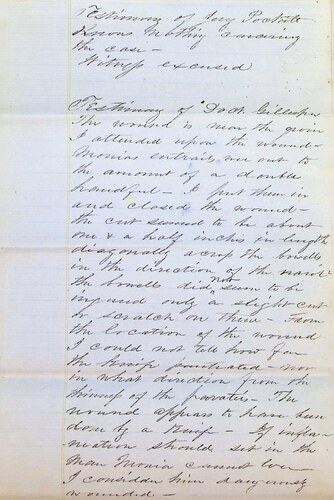 Testimony of Jery Pockets
Knows Nothing concerning
the case —
Witness excused
Testimony of Doct. Gillespie
The wound is near the groin
I attended upon the wound —
Monias entrails were out to
the amount of a double
handful — I put them in
and closed the wound —
the cut seemed to be about
one & a half inches in length
diagonally across the bowells
in the direction of the navel
the bowells did not seem to be
injured only a slight cut
or scratch on these — From
the location of the wound
I could not tell how far
the knife penetrated — nor
in what direction from the
of the — The
wound appears to have been
done by a knife — If infla-
mation should set in the
man Monia cannot live —
I consider him dangerously
wounded —